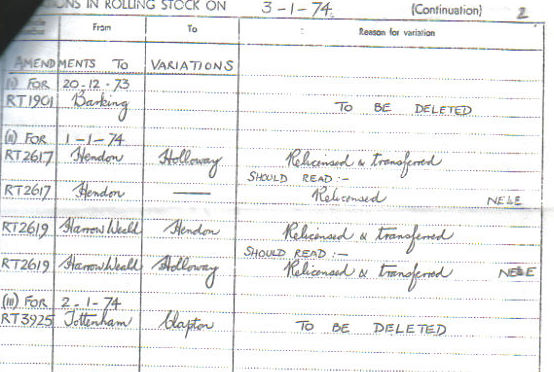 IONS IN ROLLING STOCK ON 3-1-74. (Continuation) 2
From To Reason for variation
AMENDMENTS TO VARIATIONS
(i) FOR 20-12-73
RT1901 Barking TO BE DELETED
(ii) FOR 1-1-74
RT2617 Hendon Holloway Relicensed & transferred
SHOULD READ:-
RT2617 Hendon — Relicensed NELE
RT2619 Harrow Weald Hendon Relicensed & transferred
SHOULD READ:-
RT2619 Harrow Weald Holloway Relicensed & transferred NELE
(iii) FOR 2-1-74
RT3925 Tottenham Clapton TO BE DELETED